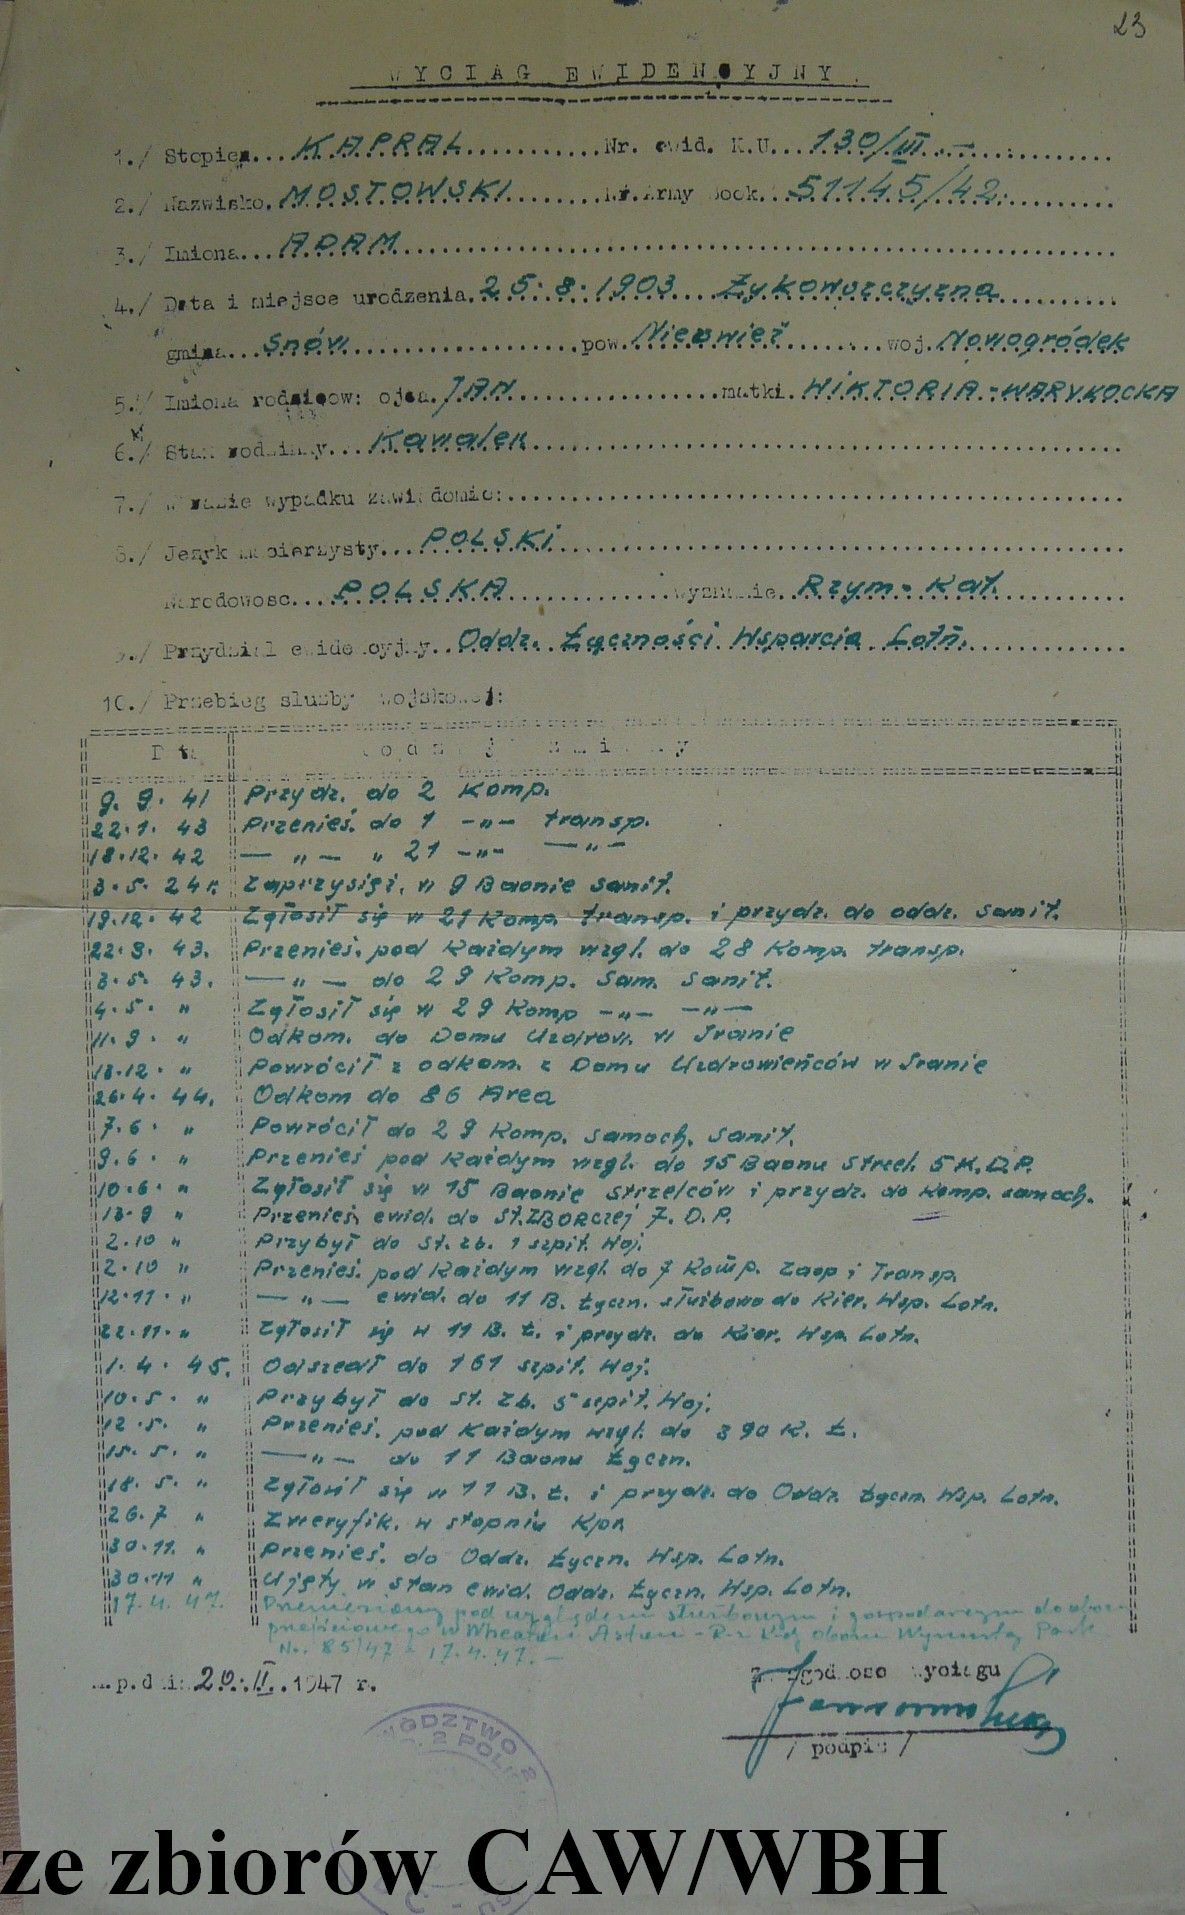 23
WYCIĄG EWIDENCYJNY.
1./ Stopień...KAPRAL...Nr. ewid. K.U...130/III.-...
2./ Nazwisko.MOSTOWSKI...Nr.Army Book..51145/42...
3./ Imiona...ADAM...
4./ Data i miejsce urodzenia.25.8.1903 Żykowszczyzna...
gmina...Snów...pow.Nieśwież...woj.Nowogródek
5./ Imiona rodziców: ojca.JAN...matki.WIKTORIA-WARYKOCKA
6./ Stan rodzinny...Kawaler...
7./ W razie wypadku zawiadomić:...
8./ Język macierzysty...POLSKI...
Narodowość...POLSKA...wyznanie..Rzym-Kat...
9./ Przydział ewidencyjny..Oddz. Łączności Wsparcia Lotn....
10./ Przebieg służby wojskowej:
Data Rodzaj zmiany
9. 9. 41 Przydz. do 2 Komp.
22.1. 43 Przenieś. do 1 -„- transp.
18.12. 42 — „ — „ 21 -„- —„-
3.5. 24r. Zaprzysięż. w 9 Baonie sanit.
19.12. 42 Zgłosił się w 21 Komp. transp. i przydz. do oddz. sanit.
22.3. 43. Przenieś. pod każdym wzgl. do 28 Komp. transp.
3.5. 43. —„— do 29 Komp. Sam. Sanit.
4.5. „ Zgłosił się w 29 Komp -„- -„-
11.9. „ Odkom. do Domu Uzdrow. w Iranie
18.12. „ Powrócił z odkom. z Domu Uzdrowieńców w Iranie
26.4. 44. Odkom do 86 Area
7.6. „ Powrócił do 29 Komp. samoch. sanit.
9.6. „ Przenieś pod każdym wzgl. do 15 Baonu Strzel. 5 K.D.P.
10.6. „ Zgłosił się w 15 Baonie strzelców i przydz. do Komp. samoch.
13.9 „ Przenieś. ewid. do St.ZBORczej 7. D.P.
2.10 „ Przybył do St. zb. 1 szpit. Woj.
2.10 „ Przenieś. pod każdym wzgl. do 7 Komp. Zaop i Transp.
12.11. „ — „ — ewid. do 11 B. Łączn. służbowo do Kier. Wsp. Lotn.
22.11. „ Zgłosił się w 11 B. Ł. i przydz. do Kier. Wsp. Lotn.
1.4. 45. Odszedł do 161 szpit. Woj.
10.5. „ Przybył do St. Zb. 5 szpit. Woj.
12.5. „ Przenieś. pod każdym wzgl. do 390 K. Ł.
15.5. „ —„— do 11 Baonu Łączn.
18.5. „ Zgłosił się w 11 B. Ł. i przydz. do Oddz. Łączn. Wsp. Lotn.
26.7 „ Zweryfik. w stopniu Kpr.
30.11. „ Przenieś. do Oddz. Łyczn. Wsp. Lotn.
30.11 „ Ujęty w stan ewid. Oddz. Łączn. Wsp. Lotn.
17.4. 47. Przeniesiony pod względem służbowym i gospodarczym do obozu
przejściowego w Wheaton Aston - obozu Park
N.. 85/47 z 17.4.47.—
m.p.dnia 20.II.1947 r.
Za zgodność wyciągu
/ podpis /
2 POL
ze zbiorów CAW/WBH